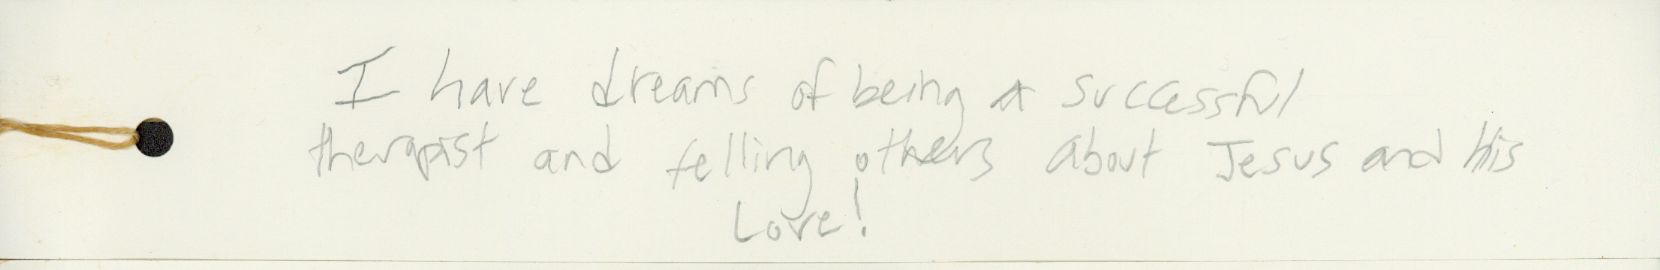 I have dreams of being a successful
therapist and telling others about Jesus and His
Love!